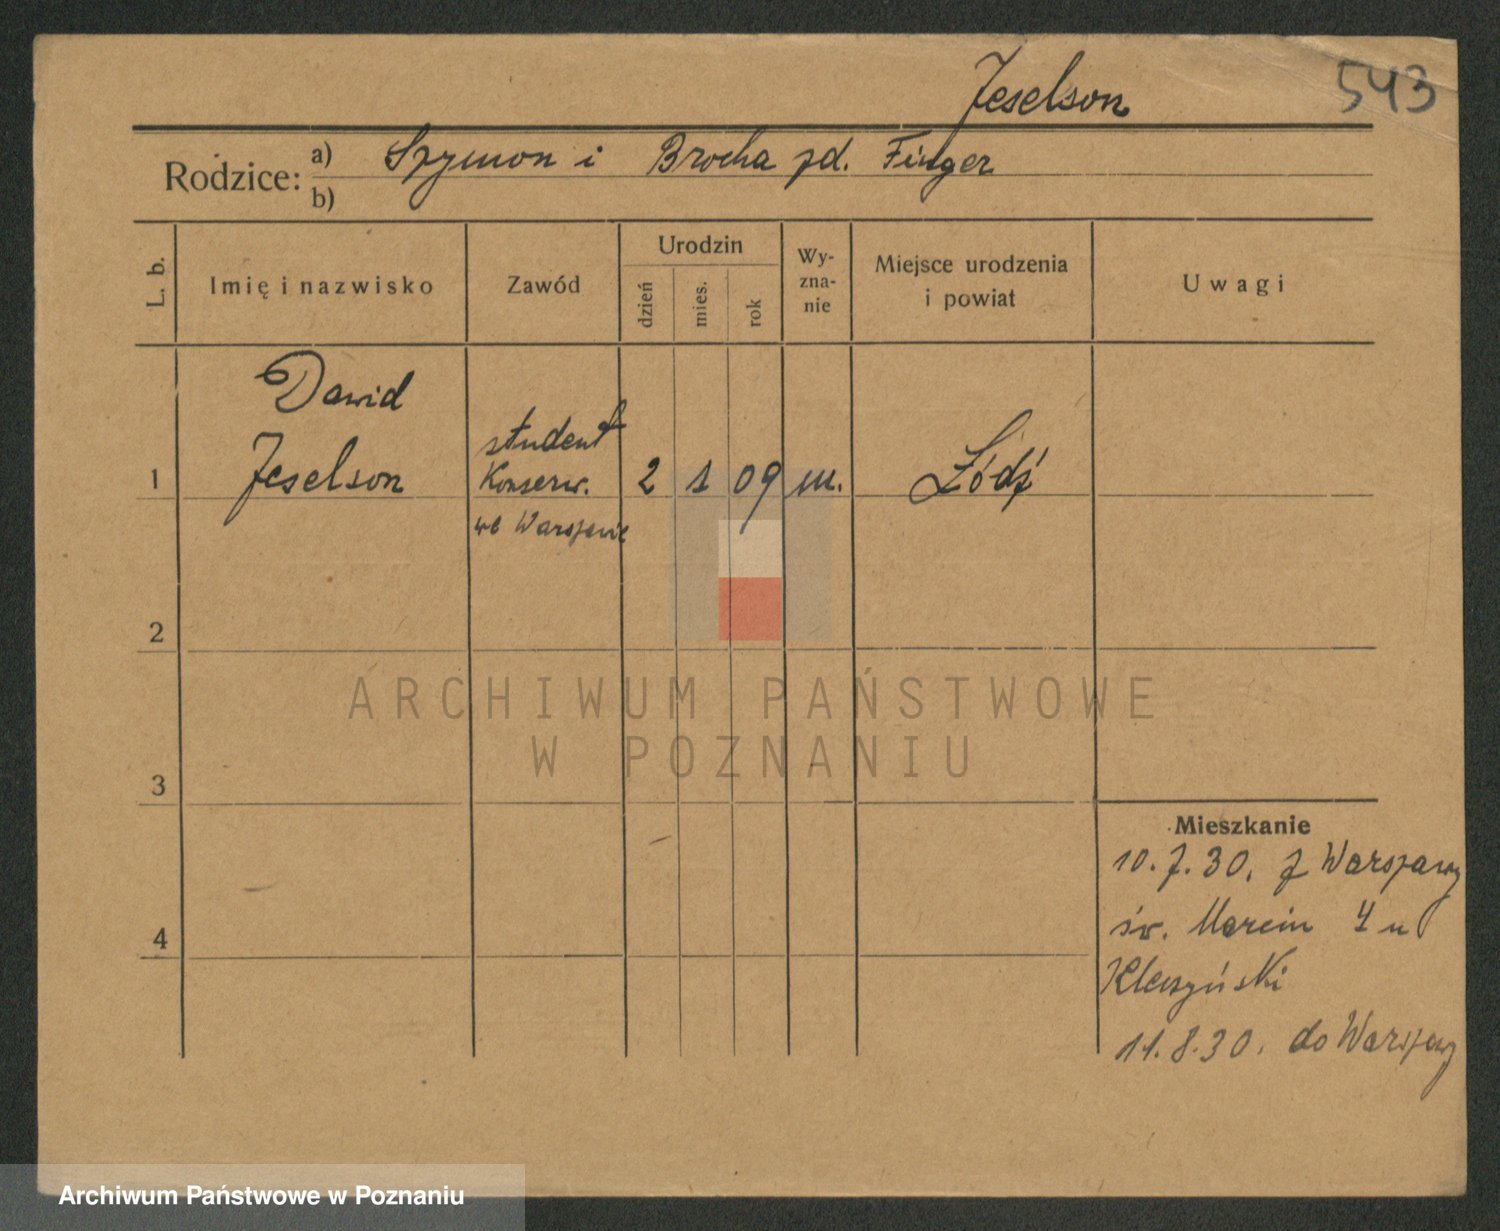 Jeselson
543
Rodzice:
a) Szymon i Brocha zd. Finger
b)
L. b.
Imię i nazwisko
Zawód
Urodzin
dzień
mies.
rok
Wy-
zna-
nie
Miejsce urodzenia
i powiat
Uwagi
Dawid
Jeselson
student
Konserw.
we Warszawie
1
2 1 09 m. Łódź
2
3
4
Mieszkanie
10.7.30. z Warszawy
św. Marcin 4 u
11.8.30. do Warszawy
ARCHIWUM PAŃSTWOWE
W POZNANIU
Archiwum Państwowe w Poznaniu